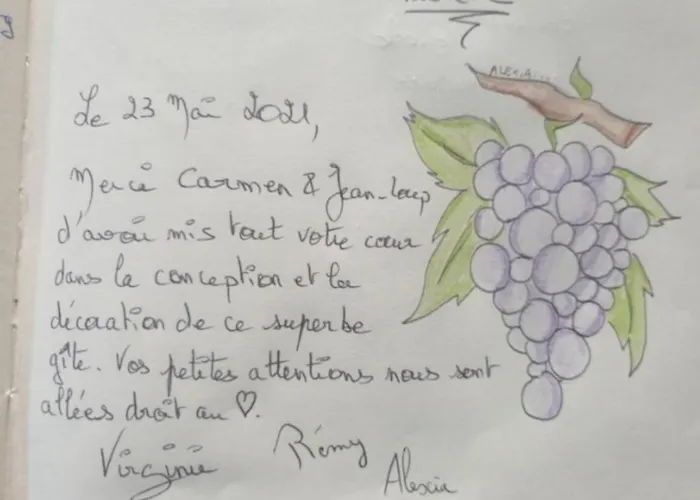 ALEXIA
Le 23 Mai 2021,
Merci Carmen & Jean-Loup
d'avoir mis tout votre cœur
dans la conception et la
décoration de ce superbe
gîte. Vos petites attentions nous sont
allées droit au ♡.
Virginie Rémy
Alexia